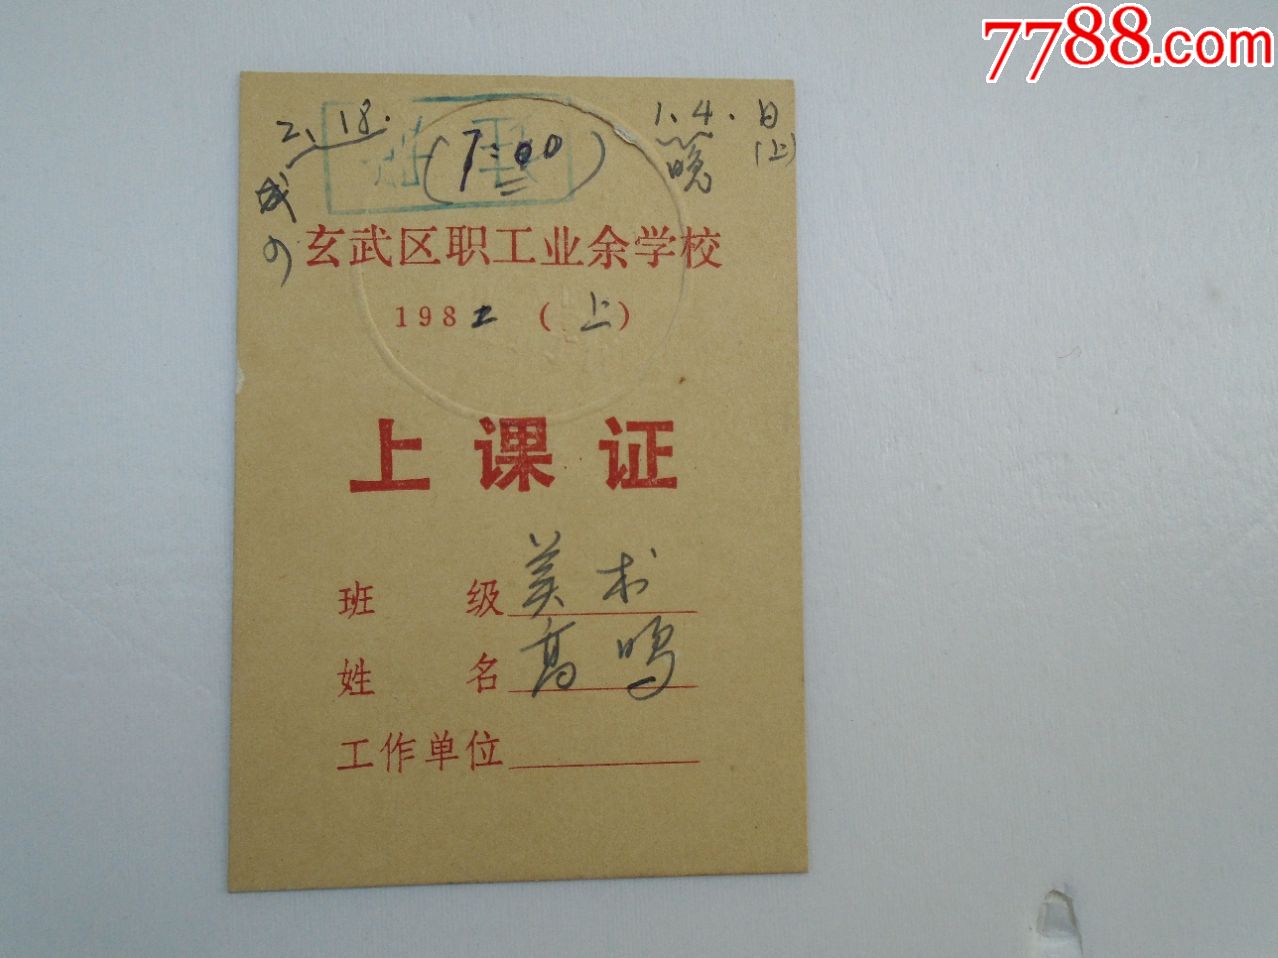 7788.com
2、18.
(7:00)
1、4、日
晚 (上)
玄武区职工业余学校
1982 (上)
上课证
班 级 美术
姓 名 高鸣
工作单位